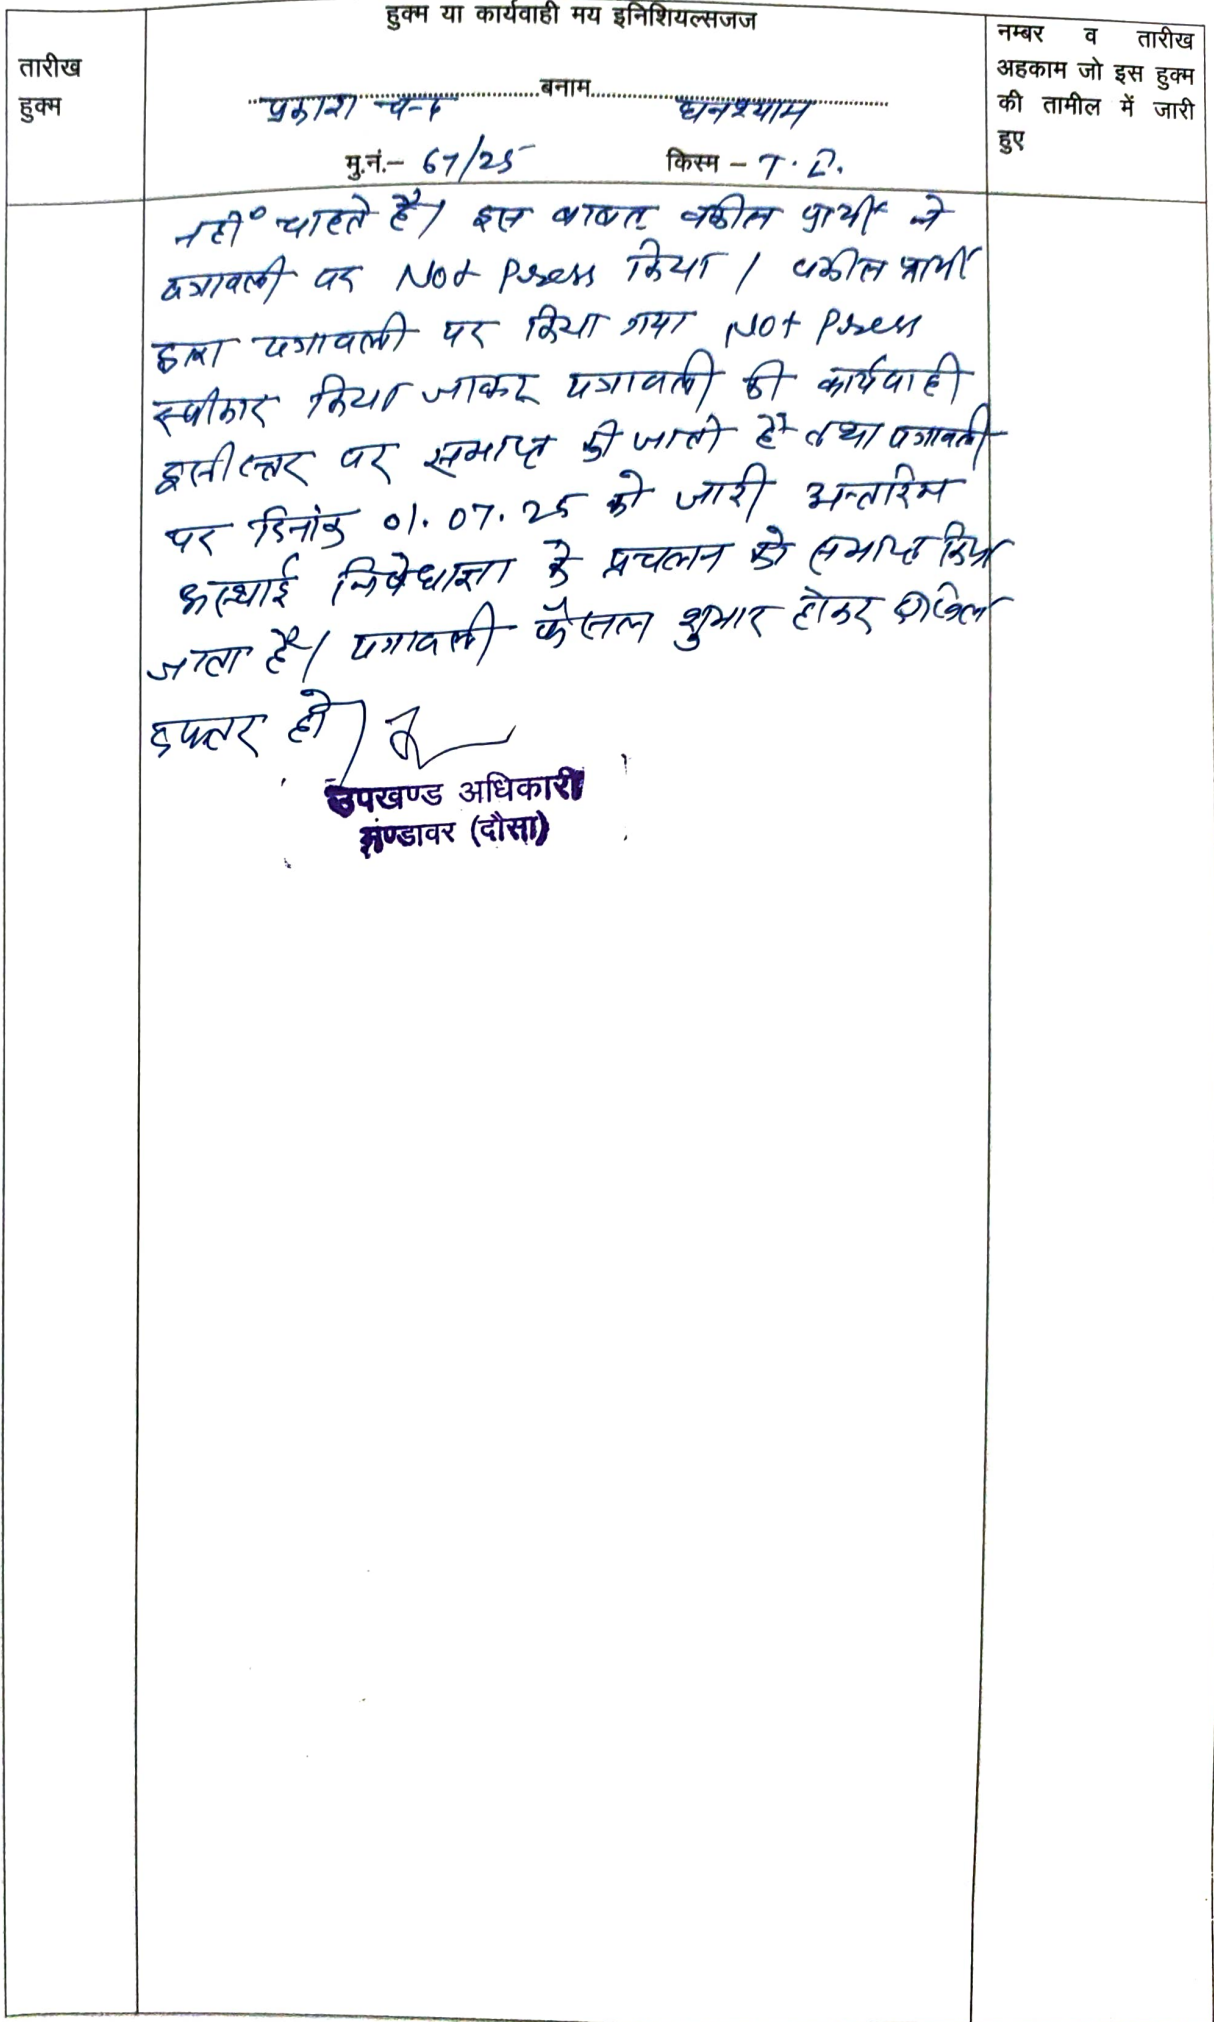 हुक्म या कार्यवाही मय इनिशियल्सजज
तारीख
हुक्म
प्रकाश चन्द बनाम घनश्याम
मु.नं.– 67/25 किस्म – T.I.
नम्बर व तारीख
अहकाम जो इस हुक्म
की तामील में जारी
हुए
नहीं चाहते है। इस बाबत वकील प्रार्थी ने
पत्रावली पर Not Press किया। वकील प्रार्थी
द्वारा पत्रावली पर किया गया Not Press
स्वीकार किया जाकर पत्रावली की कार्यवाही
इसी स्तर पर समाप्त की जाती है तथा पत्रावली
पर दिनांक 01.07.25 को जारी अन्तरिम
अस्थाई निषेधाज्ञा के प्रचलन को समाप्त किया
जाता है। पत्रावली फैसल शुमार होकर दाखिल
दफ्तर हो।
उपखण्ड अधिकारी
मण्डावर (दौसा)